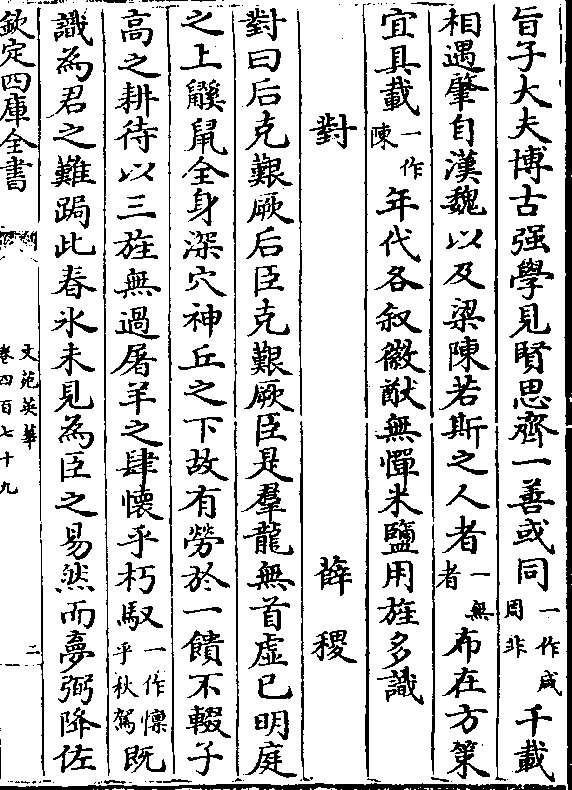 旨子大夫博古强學見賢思齊一善或同一作咸周非千載
相遇肇自漢魏以及梁陳若斯之人者一無者布在方策
宜具載一作陳年代各叙徽猷無憚米鹽用旌多識
對　薛稷
對曰后克艱厥后臣克艱厥臣是羣龍無首虚已明庭
之上鼷䑕全身深穴神丘之下故有勞於一饋不輟子
高之耕待以三旌無過屠羊之肆懷乎朽馭一作懍乎秋駕既
識為君之難跼此春氷未見為臣之易然而夢弼降佐
欽定四庫全書
文苑英華
卷四百七十九
二